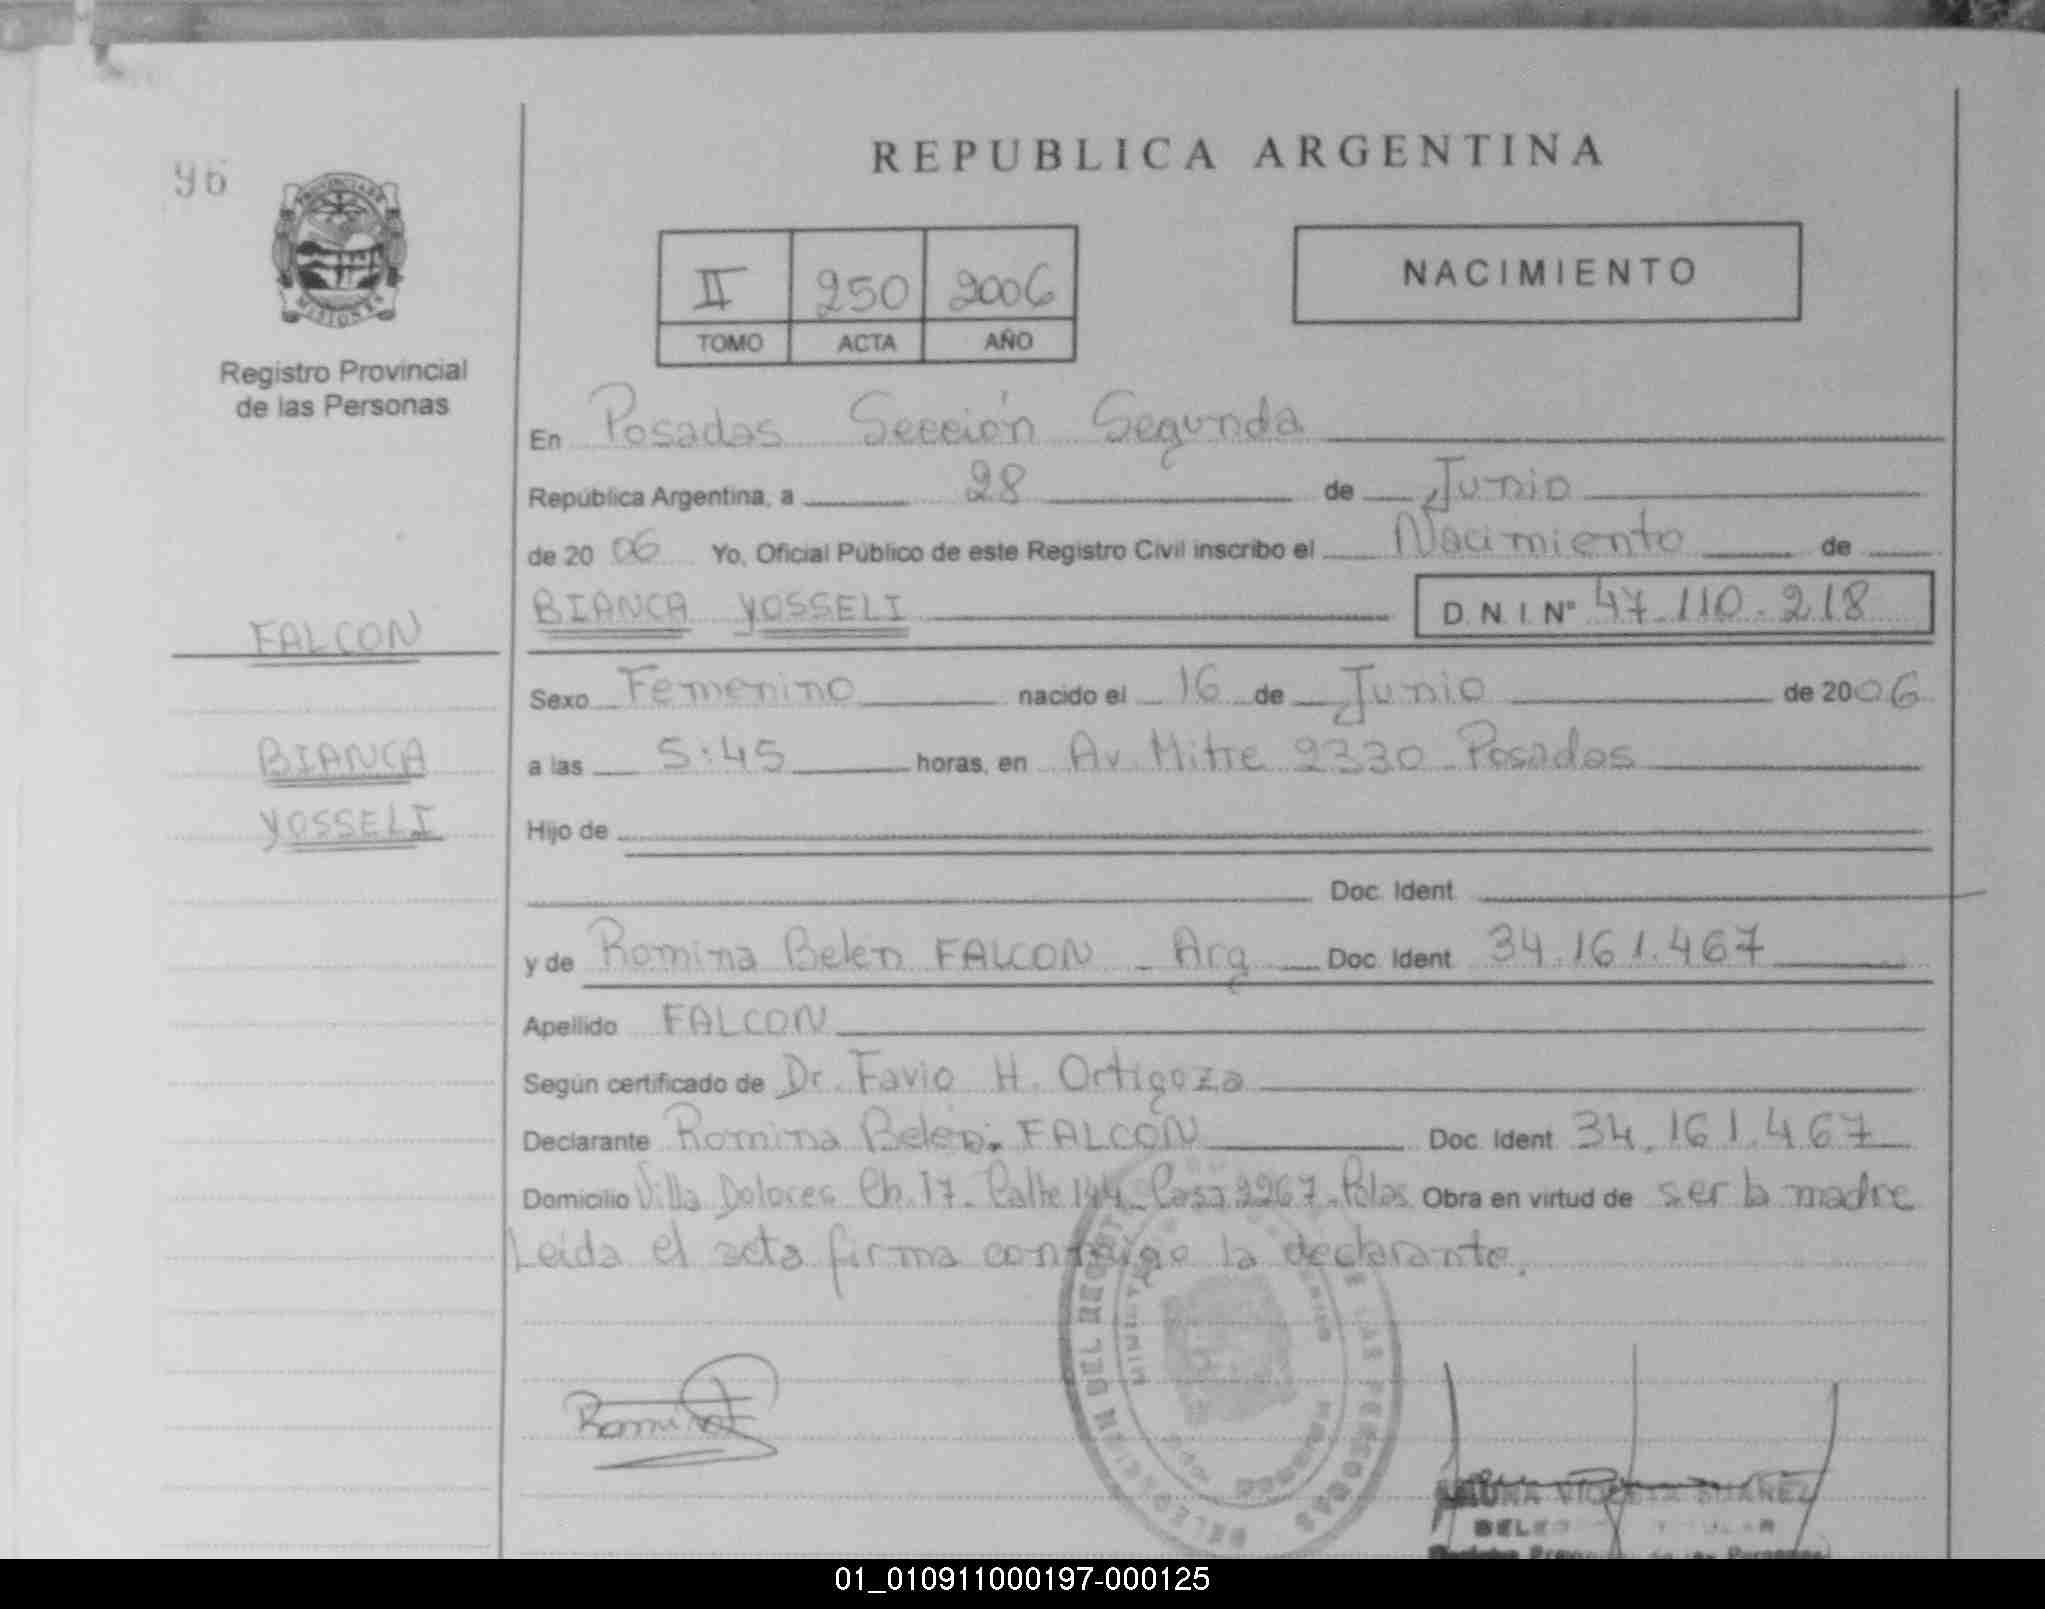 96
PROVINCIA DE
MISIONES
Registro Provincial
de las Personas
FALCON
BIANCA
YOSSELI
REPUBLICA ARGENTINA
II 250 2006
TOMO ACTA AÑO
NACIMIENTO
En Posadas Sección Segunda
República Argentina, a 28 de Junio
de 20 06 Yo, Oficial Público de este Registro Civil inscribo el Nacimiento de
BIANCA YOSSELI D. N. I. Nº 47.110.218
Sexo Femenino nacido el 16 de Junio de 2006
a las 5:45 horas, en Av. Mitre 2330 Posadas
Hijo de
Doc. Ident.
y de Romina Belén FALCON - Arg Doc. Ident. 34.161.467
Apellido FALCON
Según certificado de Dr. Favio H. Ortigoza
Declarante Romina Belén FALCON Doc. Ident. 34.161.467
Domicilio Villa Dolores Ch. 17- Calle 144- Casa 2267- Pdas Obra en virtud de ser la madre
Leída el acta firma conmigo la declarante.
Romina
SUAREZ
01_010911000197-000125